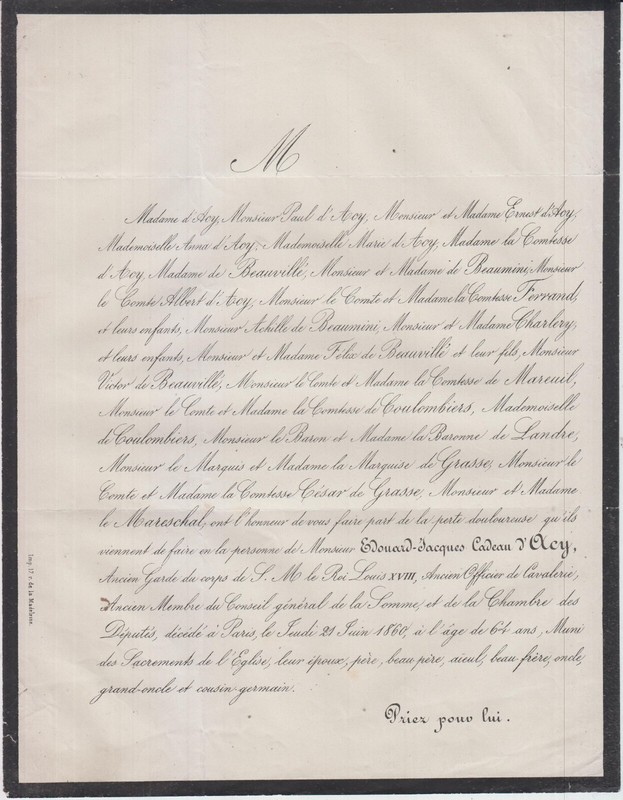 M
Madame d'Acy, Monsieur Paul d'Acy, Monsieur et Madame Ernest d'Acy,
Mademoiselle Anna d'Acy, Mademoiselle Marie d'Acy, Madame la Comtesse
d'Acy, Madame de Beauvillé, Monsieur et Madame de Beaumini, Monsieur
le Comte Albert d'Acy, Monsieur le Comte et Madame la Comtesse Ferrand,
et leurs enfants, Monsieur Achille de Beaumini, Monsieur et Madame Charlery,
et leurs enfants, Monsieur et Madame Félix de Beauvillé et leur fils, Monsieur
Victor de Beauvillé, Monsieur le Comte et Madame la Comtesse de Mareuil,
Monsieur le Comte et Madame la Comtesse de Coulombiers, Mademoiselle
de Coulombiers, Monsieur le Baron et Madame la Baronne de Landre,
Monsieur le Marquis et Madame la Marquise de Grasse, Monsieur le
Comte et Madame la Comtesse César de Grasse, Monsieur et Madame
le Mareschal, ont l'honneur de vous faire part de la perte douloureuse qu'ils
viennent de faire en la personne de Monsieur Edouard-Jacques Cadeau d'Acy,
Ancien Garde du corps de S. M. le Roi Louis XVIII, Ancien Officier de Cavalerie,
Ancien Membre du Conseil général de la Somme, et de la Chambre des
Députés, décédé à Paris, le Jeudi 21 Juin 1860, à l'âge de 64 ans, Muni
des Sacrements de l'Eglise, leur époux, père, beau-père, aïeul, beau-frère, oncle,
grand-oncle et cousin-germain.
Priez pour lui.
Imp. 17 r. de la Madeleine.